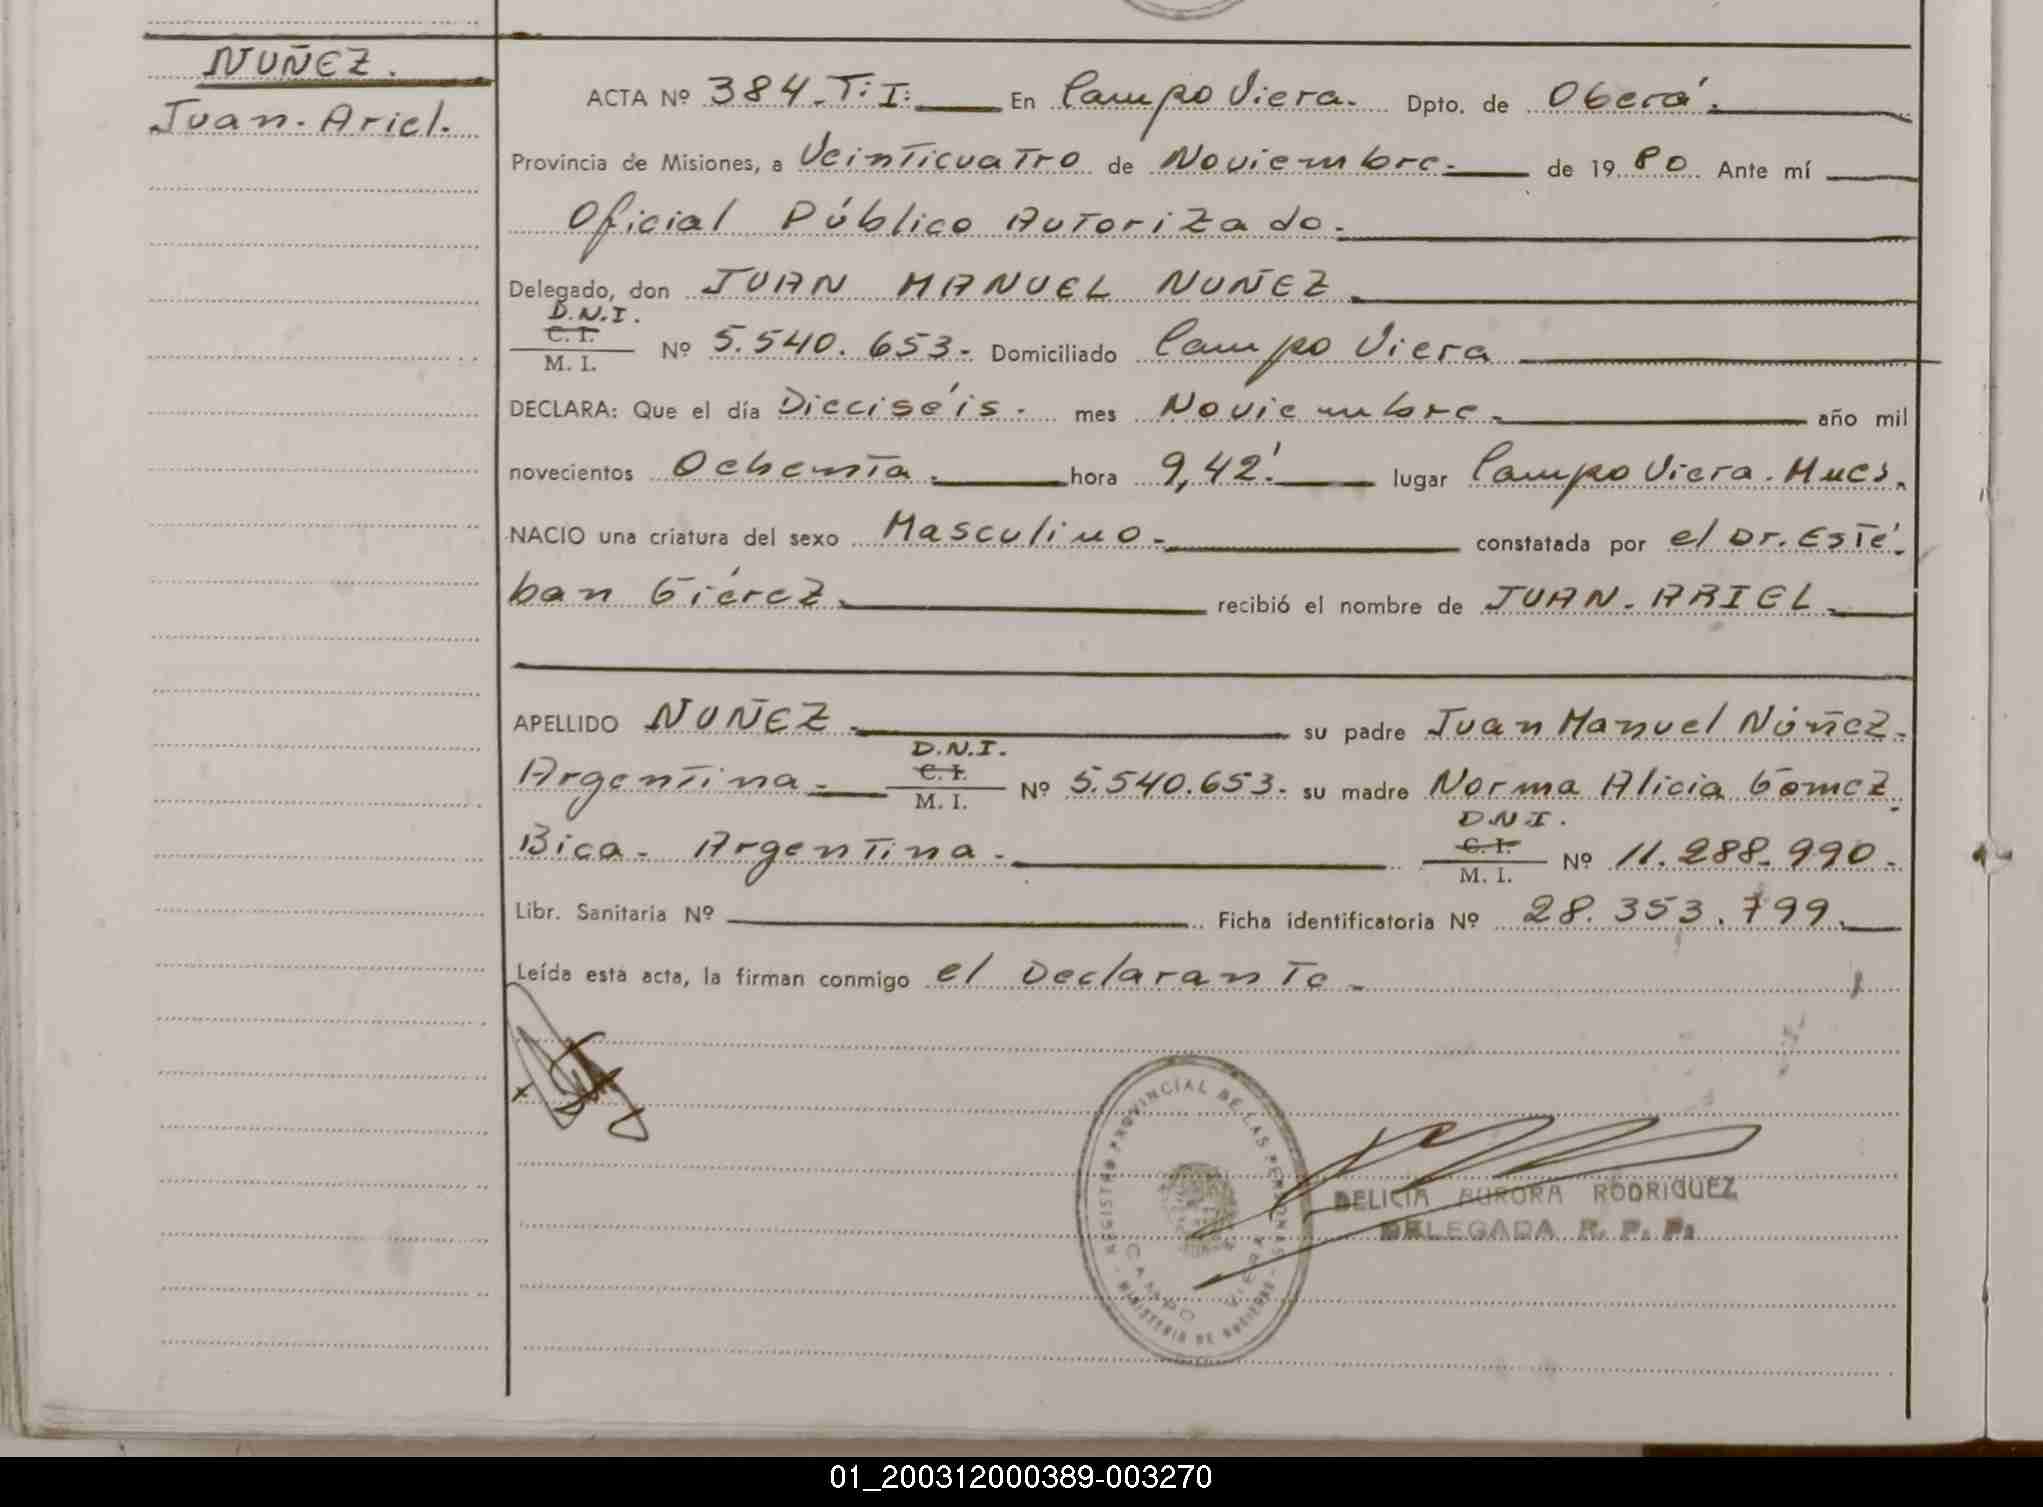 NUÑEZ.
Juan. Ariel.
ACTA Nº 384. T: I: En Campo Viera. Dpto. de Oberá.
Provincia de Misiones, a Veinticuatro de Noviembre. de 1980. Ante mí
Oficial Público Autorizado.
Delegado, don JUAN MANUEL NUÑEZ
D.N.I.
C. I.
M. I. Nº 5.540.653. Domiciliado Campo Viera
DECLARA: Que el día Dieciséis. mes Noviembre. año mil
novecientos Ochenta. hora 9,42' lugar Campo Viera. Mnes.
NACIO una criatura del sexo Masculino. constatada por el Dr. Esté
ban recibió el nombre de JUAN. ARIEL
APELLIDO NUÑEZ su padre Juan Manuel Núñez.
D.N.I.
C. I.
Argentina. M. I. Nº 5.540.653. su madre Norma Alicia Gómez
D.N.I.
C. I.
Bica. Argentina. M. I. Nº 11.288.990.
Libr. Sanitaria Nº Ficha identificatoria Nº 28.353.799.
Leída esta acta, la firman conmigo el Declarante.
REGISTRO PROVINCIAL DE LAS PERSONAS
CAMPO VIERA
MINISTERIO DE GOBIERNO
DELICIA AURORA RODRIGUEZ
DELEGADA R. P. P.
01_200312000389-003270